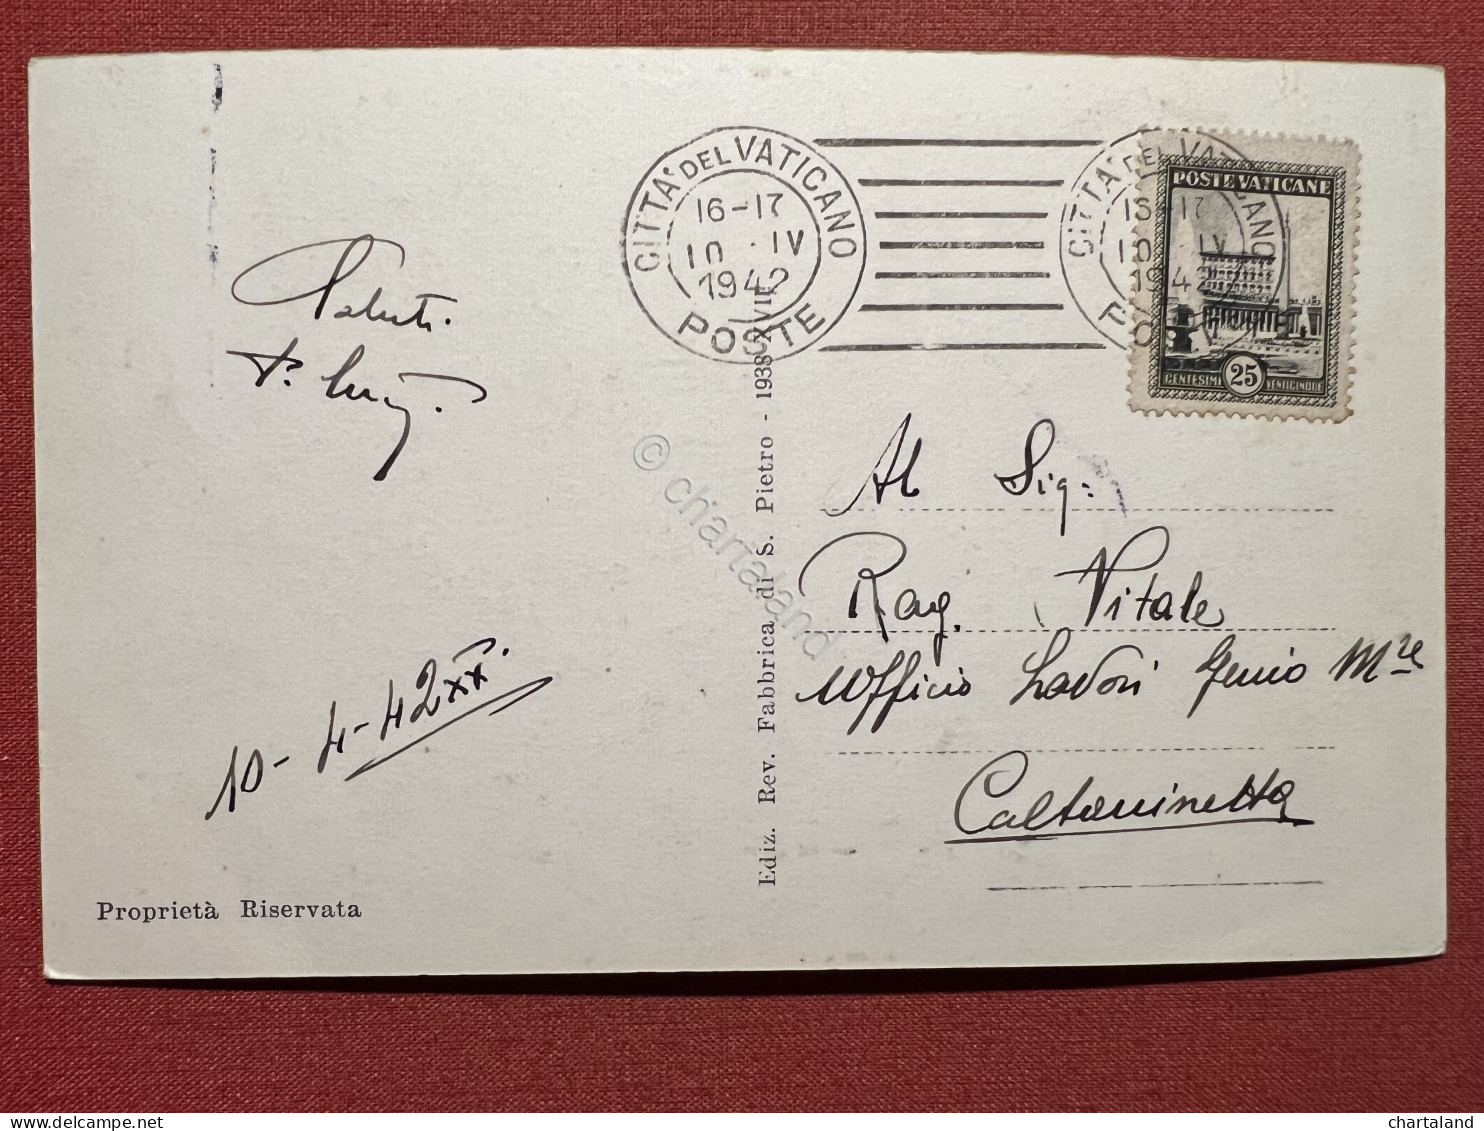 CITTÀ DEL VATICANO
16-17
10 · IV
1942
POSTE
CITTÀ DEL VATICANO
16-17
10 · IV
1942
POSTE
POSTE VATICANE
CENTESIMI 25 VENTICINQUE
Saluti.
10-4-42 XX.
Proprietà Riservata
Ediz. Rev. Fabbrica di S. Pietro - 1938-XVII
Al Sig:
Rag. Vitale
Ufficio Lavori Genio Mre
Caltaninetta
© chartaland
chartaland